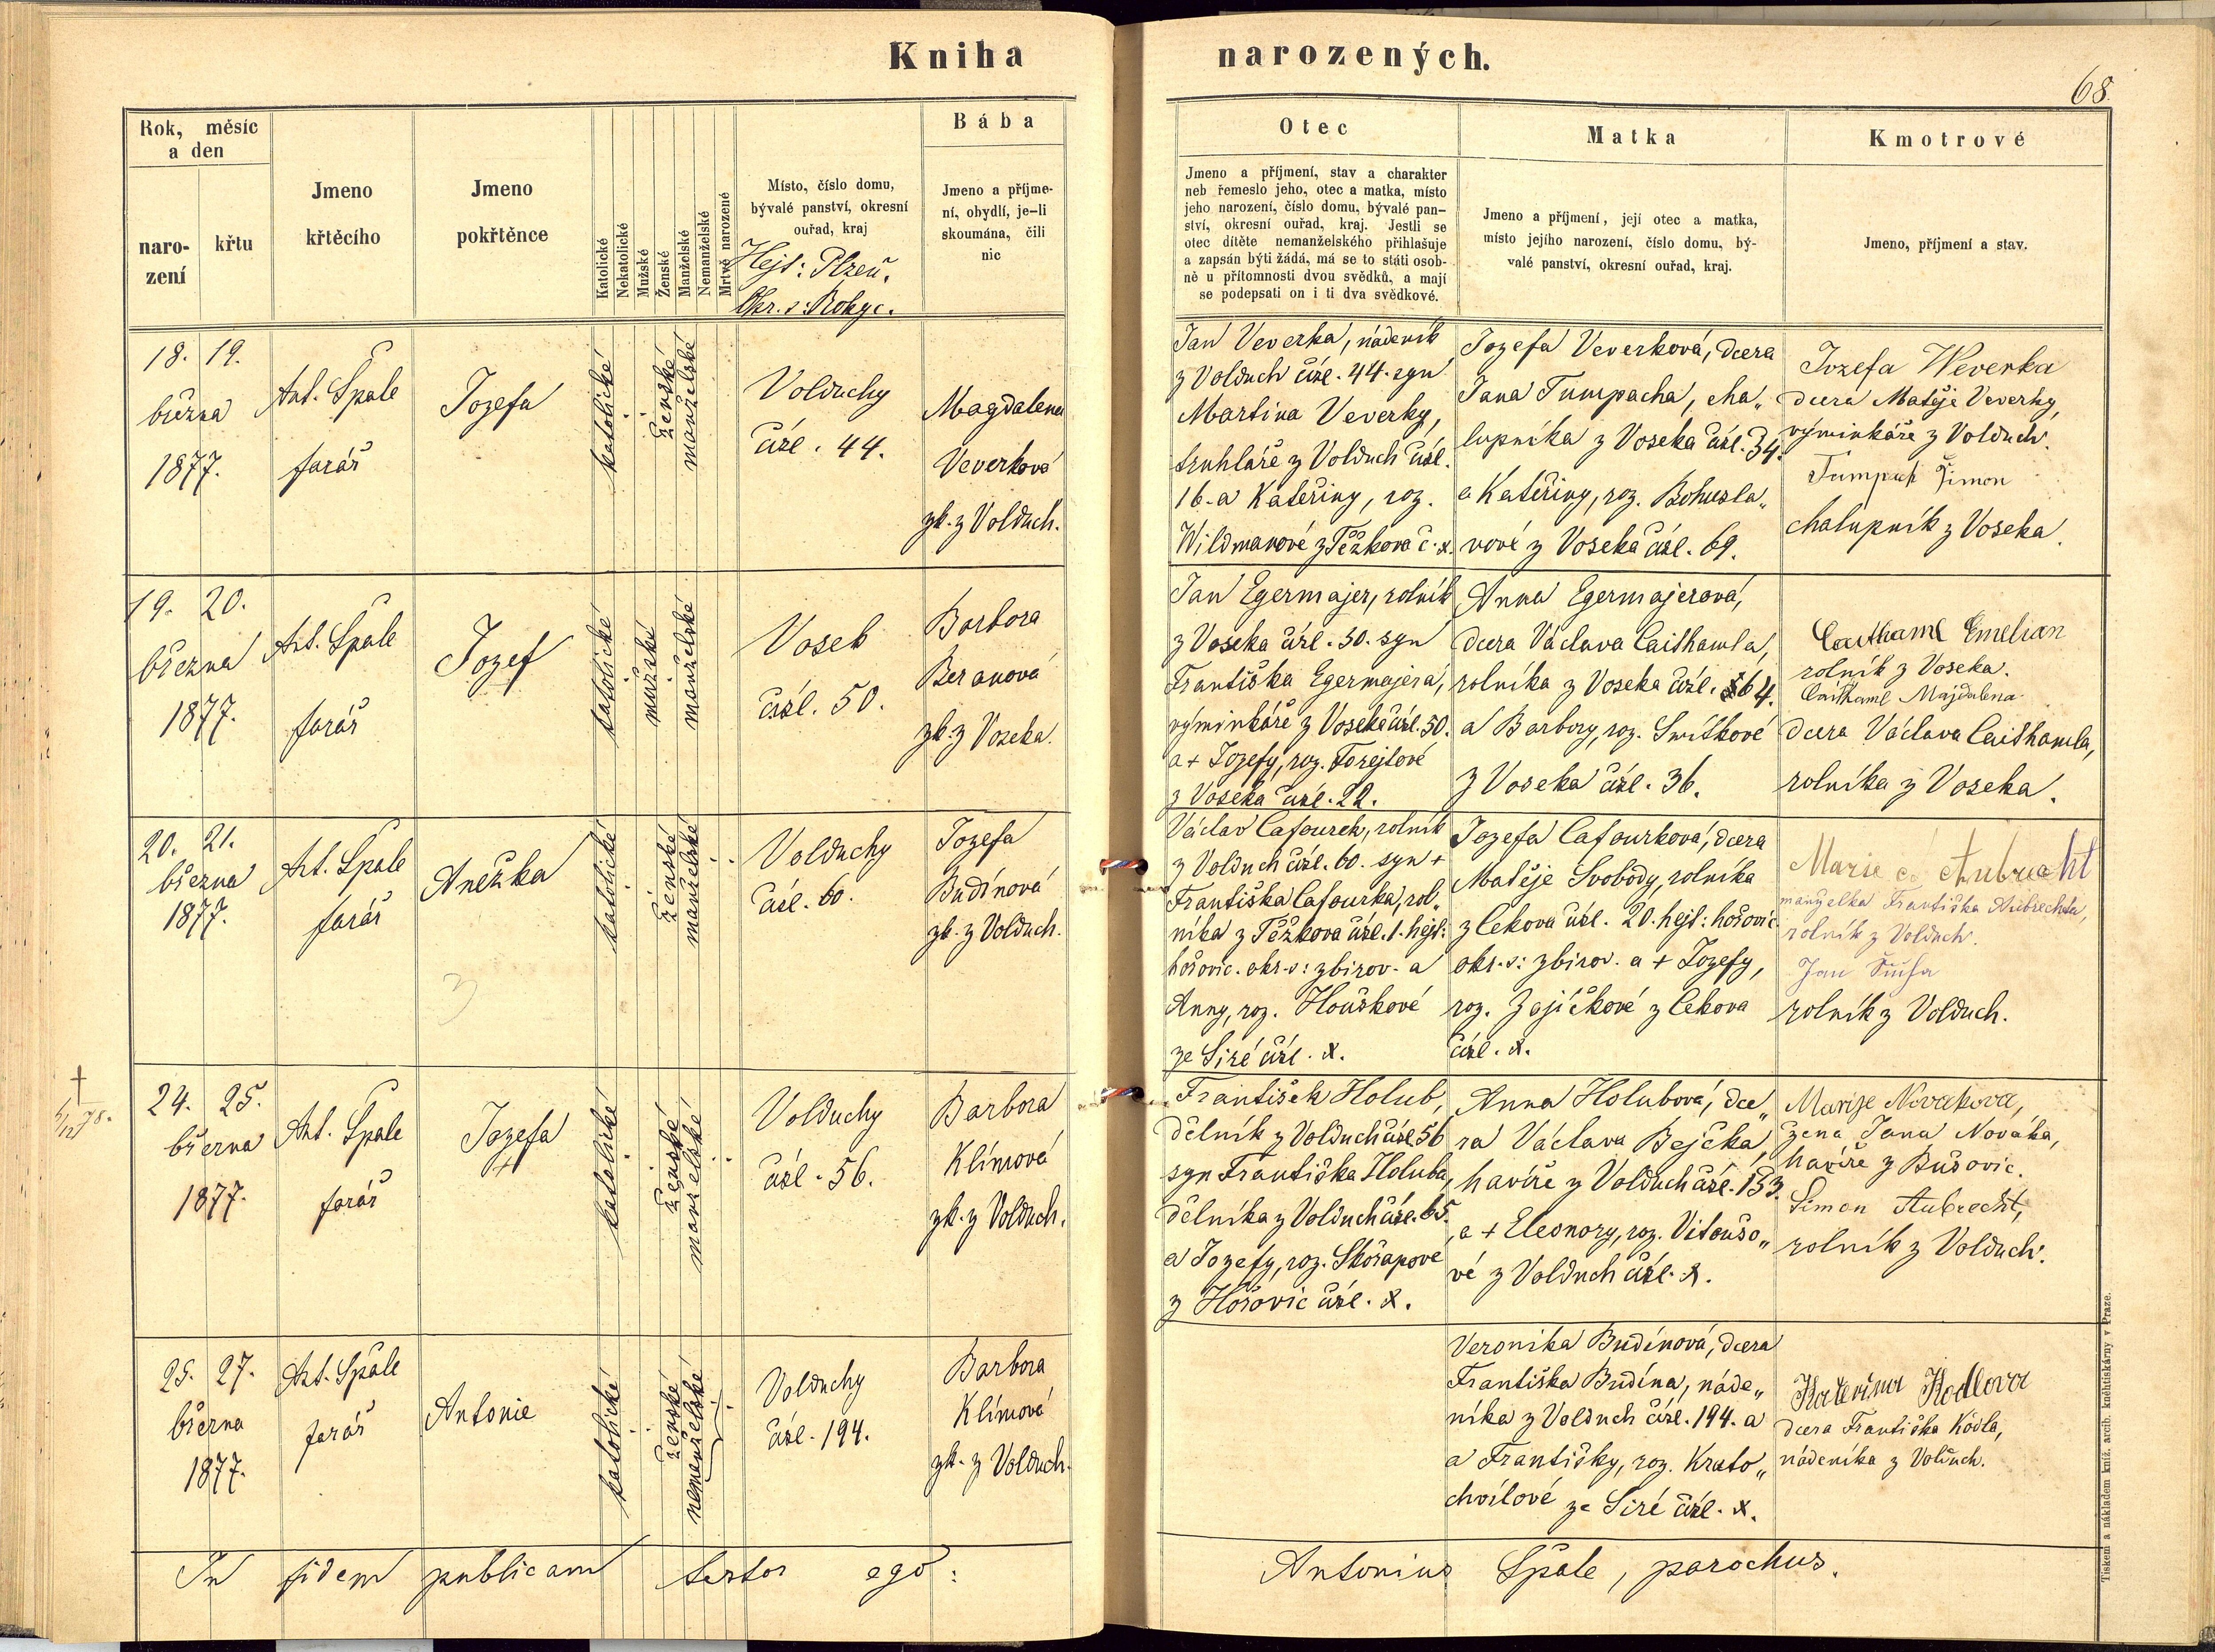 Kniha narozených.
68.
Rok, měsíc
a den
naro-
zení
křtu
Jmeno
křtěcího
Jmeno
pokřtěnce
Katolické
Nekatolické
Mužské
Ženské
Manželské
Nemanželské
Mrtvě narozené
Místo, číslo domu,
bývalé panství, okresní
ouřad, kraj
Hejt: Plzeň.
Okr. s: Rokyc.
Bába
Jmeno a příjme-
ní, obydlí, je-li
skoumána, čili
nic
Otec
Jmeno a příjmení, stav a charakter
neb řemeslo jeho, otec a matka, místo
jeho narození, číslo domu, bývalé pan-
ství, okresní ouřad, kraj. Jestli se
otec dítěte nemanželského přihlašuje
a zapsán býti žádá, má se to státi osob-
ně u přítomnosti dvou svědků, a mají
se podepsati on i ti dva svědkové.
Matka
Jmeno a příjmení, její otec a matka,
místo jejího narození, číslo domu, bý-
valé panství, okresní ouřad, kraj.
Kmotrové
Jmeno, příjmení a stav.
18. 19.
března
1877.
Ant. Špale
farář
Jozefa
katolické
ženské
manželské
Volduchy
čísl. 44.
Magdalena
Veverková
zk. z Volduch.
Jan Veverka, nádeník
z Volduch čísl. 44. syn
Martina Veverky,
truhláře z Volduch čísl.
16. a Kateřiny, roz.
Wildmanové z Těžkova č. x.
Jozefa Veverková, dcera
Jana Tumpacha, cha„
lupníka z Voseka čísl. 34.
a Kateřiny, roz. Bohusla„
vové z Voseka čísl. 69.
Jozefa Weverka
dcera Matěje Veverky,
výminkáře z Volduch.
Tumpach Šimon
chalupník z Voseka.
19. 20.
března
1877.
Ant. Špale
farář
Jozef
katolické
mužské
manželské
Vosek
čísl. 50.
Barbora
Beranová
zk. z Voseka.
Jan Egermajer, rolník
z Voseka čísl. 50. syn
Františka Egermajera,
výminkáře z Voseka čísl. 50.
a + Jozefy, roz. Forejtové
z Voseka čísl. 22.
Anna Egermajerová,
dcera Václava Caithamla,
rolníka z Voseka čísl. 64.
a Barbory, roz. Smítkové
z Voseka čísl. 36.
Caithaml Emelian
rolník z Voseka.
Caithaml Majdalena
dcera Václava Caithamla,
rolníka z Voseka.
20. 21.
března
1877.
Ant. Špale
farář
Anežka
katolické
ženské
manželské
Volduchy
čísl. 60.
Jozefa
Budínová
zk. z Volduch.
Václav Cafourek, rolník
z Volduch čísl. 60. syn +
Františka Cafourka, rol„
níka z Těžkova čísl. 1. hejt:
hořovic. okr. s: zbirov. a
Anny, roz. Houškové
ze Siré čísl. x.
Jozefa Cafourková, dcera
Matěje Svobody, rolníka
z Cekova čísl. 20. hejt: hořovic
okr. s: zbirov. a + Jozefy,
roz. Zajíčkové z Cekova
čísl. x.
Marie Aubrecht
manželka Františka Aubrechta,
rolník z Volduch.
Jan
rolník z Volduch.
24. 25.
března
1877.
Ant. Špale
farář
Jozefa
+
katolické
ženské
manželské
Volduchy
čísl. 56.
Barbora
Klímová
zk. z Volduch.
František Holub,
dělník z Volduch čísl. 56
syn Františka Holuba,
dělníka z Volduch čísl. 65.
a Jozefy, roz. Skořapové
z Hořovic čísl. x.
Anna Holubová, dce„
ra Václava Bejčka,
havíře z Volduch čísl. 153.
a + Eleonory, roz. Vitoušo„
vé z Volduch čísl. x.
Marije Nováková,
žena Jana Nováka,
havíře z Bušovic.
Šimon Aubrecht,
rolník z Volduch.
25. 27.
března
1877.
Ant. Špale
farář
Antonie
katolické
ženské
nemanželské
Volduchy
čísl. 194.
Barbora
Klímová
zk. z Volduch.
Veronika Budínová, dcera
Františka Budína, náde„
níka z Volduch čísl. 194. a
a Františky, roz. Krato„
chvílové ze Siré čísl. x.
Kateřina Kodlova
dcera Františka Kódla,
nádeníka z Volduch.
In fidem publicam testor ego: Antonius Špale, parochus.
Tiskem a nákladem kníž. arcib. kněhtiskárny v Praze.